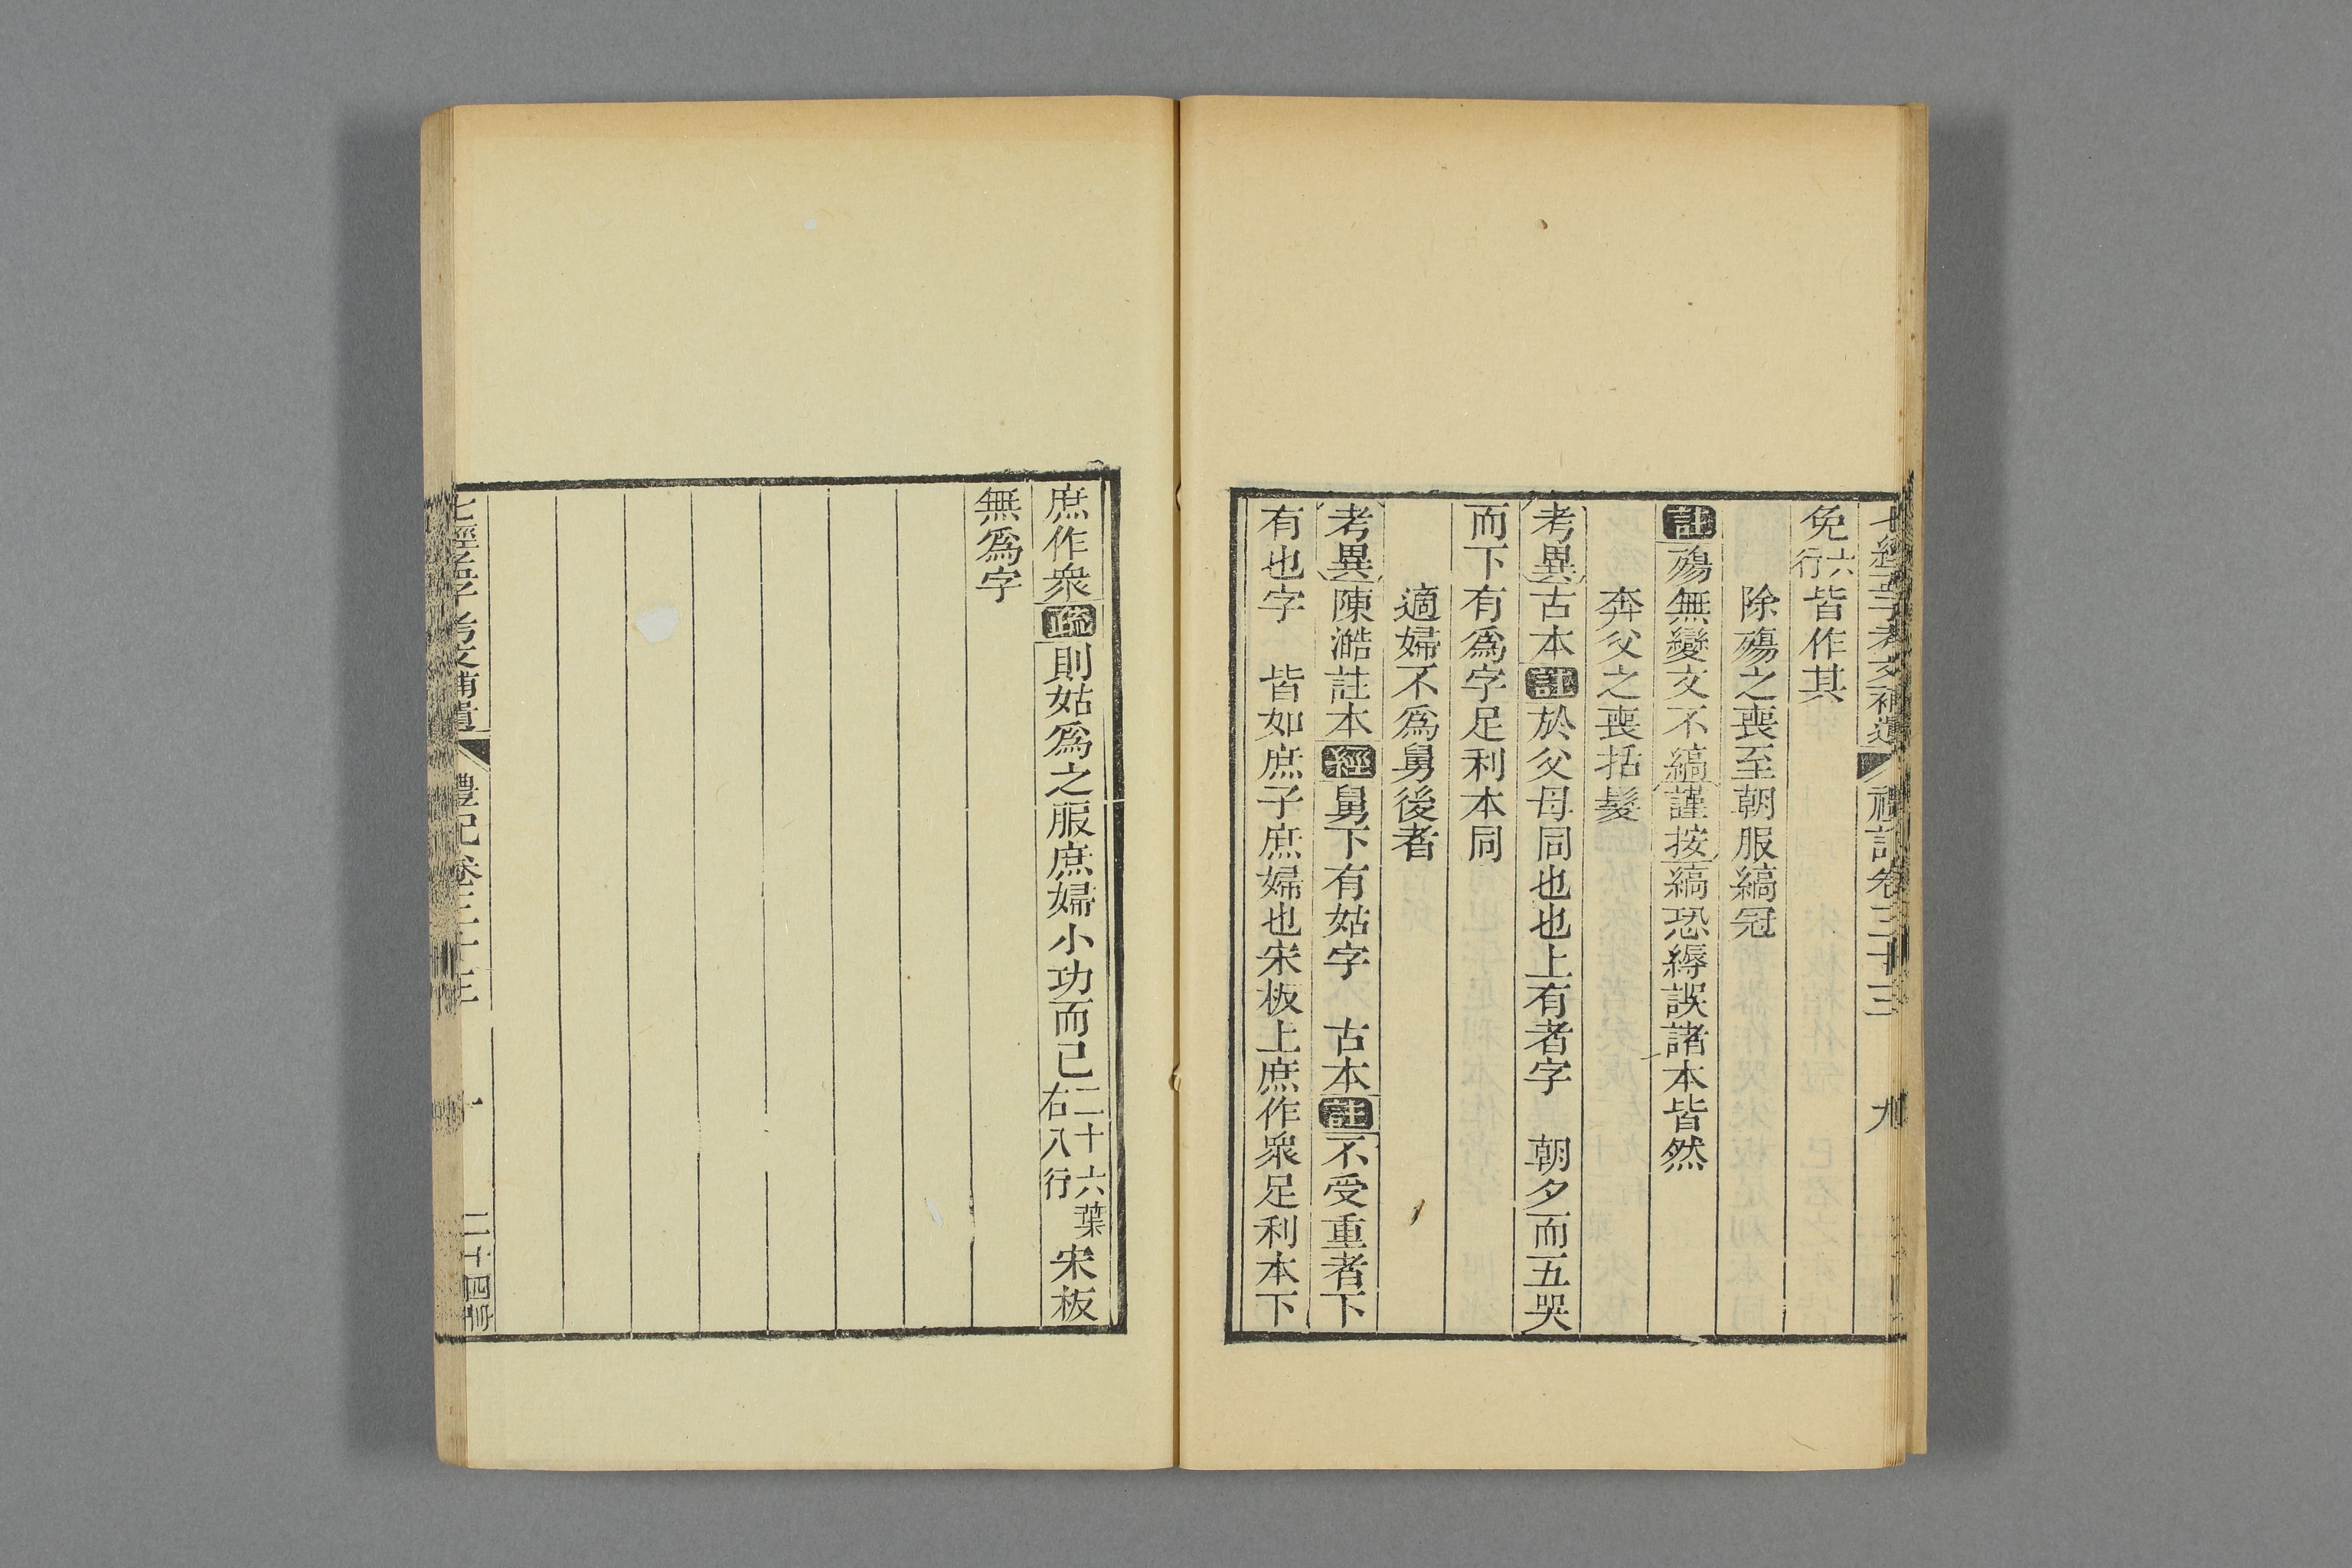 七經孟子考文補遺 禮記卷三十三 九
免六行皆作其
除殤之喪至朝服縞冠
註殤無變文不縞謹按縞恐縟誤諸本皆然
奔父之喪括髮
考異古本註於父母同也也上有者字 朝夕而五哭
而下有爲字足利本同
適婦不爲舅後者
考異陳澔註本經舅下有姑字 古本註不受重者下
有也字 皆如庶子庶婦也宋板上庶作衆足利本下
庶作衆疏則姑爲之服庶婦小功而已二十六葉右八行宋板
無爲字
七經孟子考文補遺 禮記卷三十三 十 二十四冊